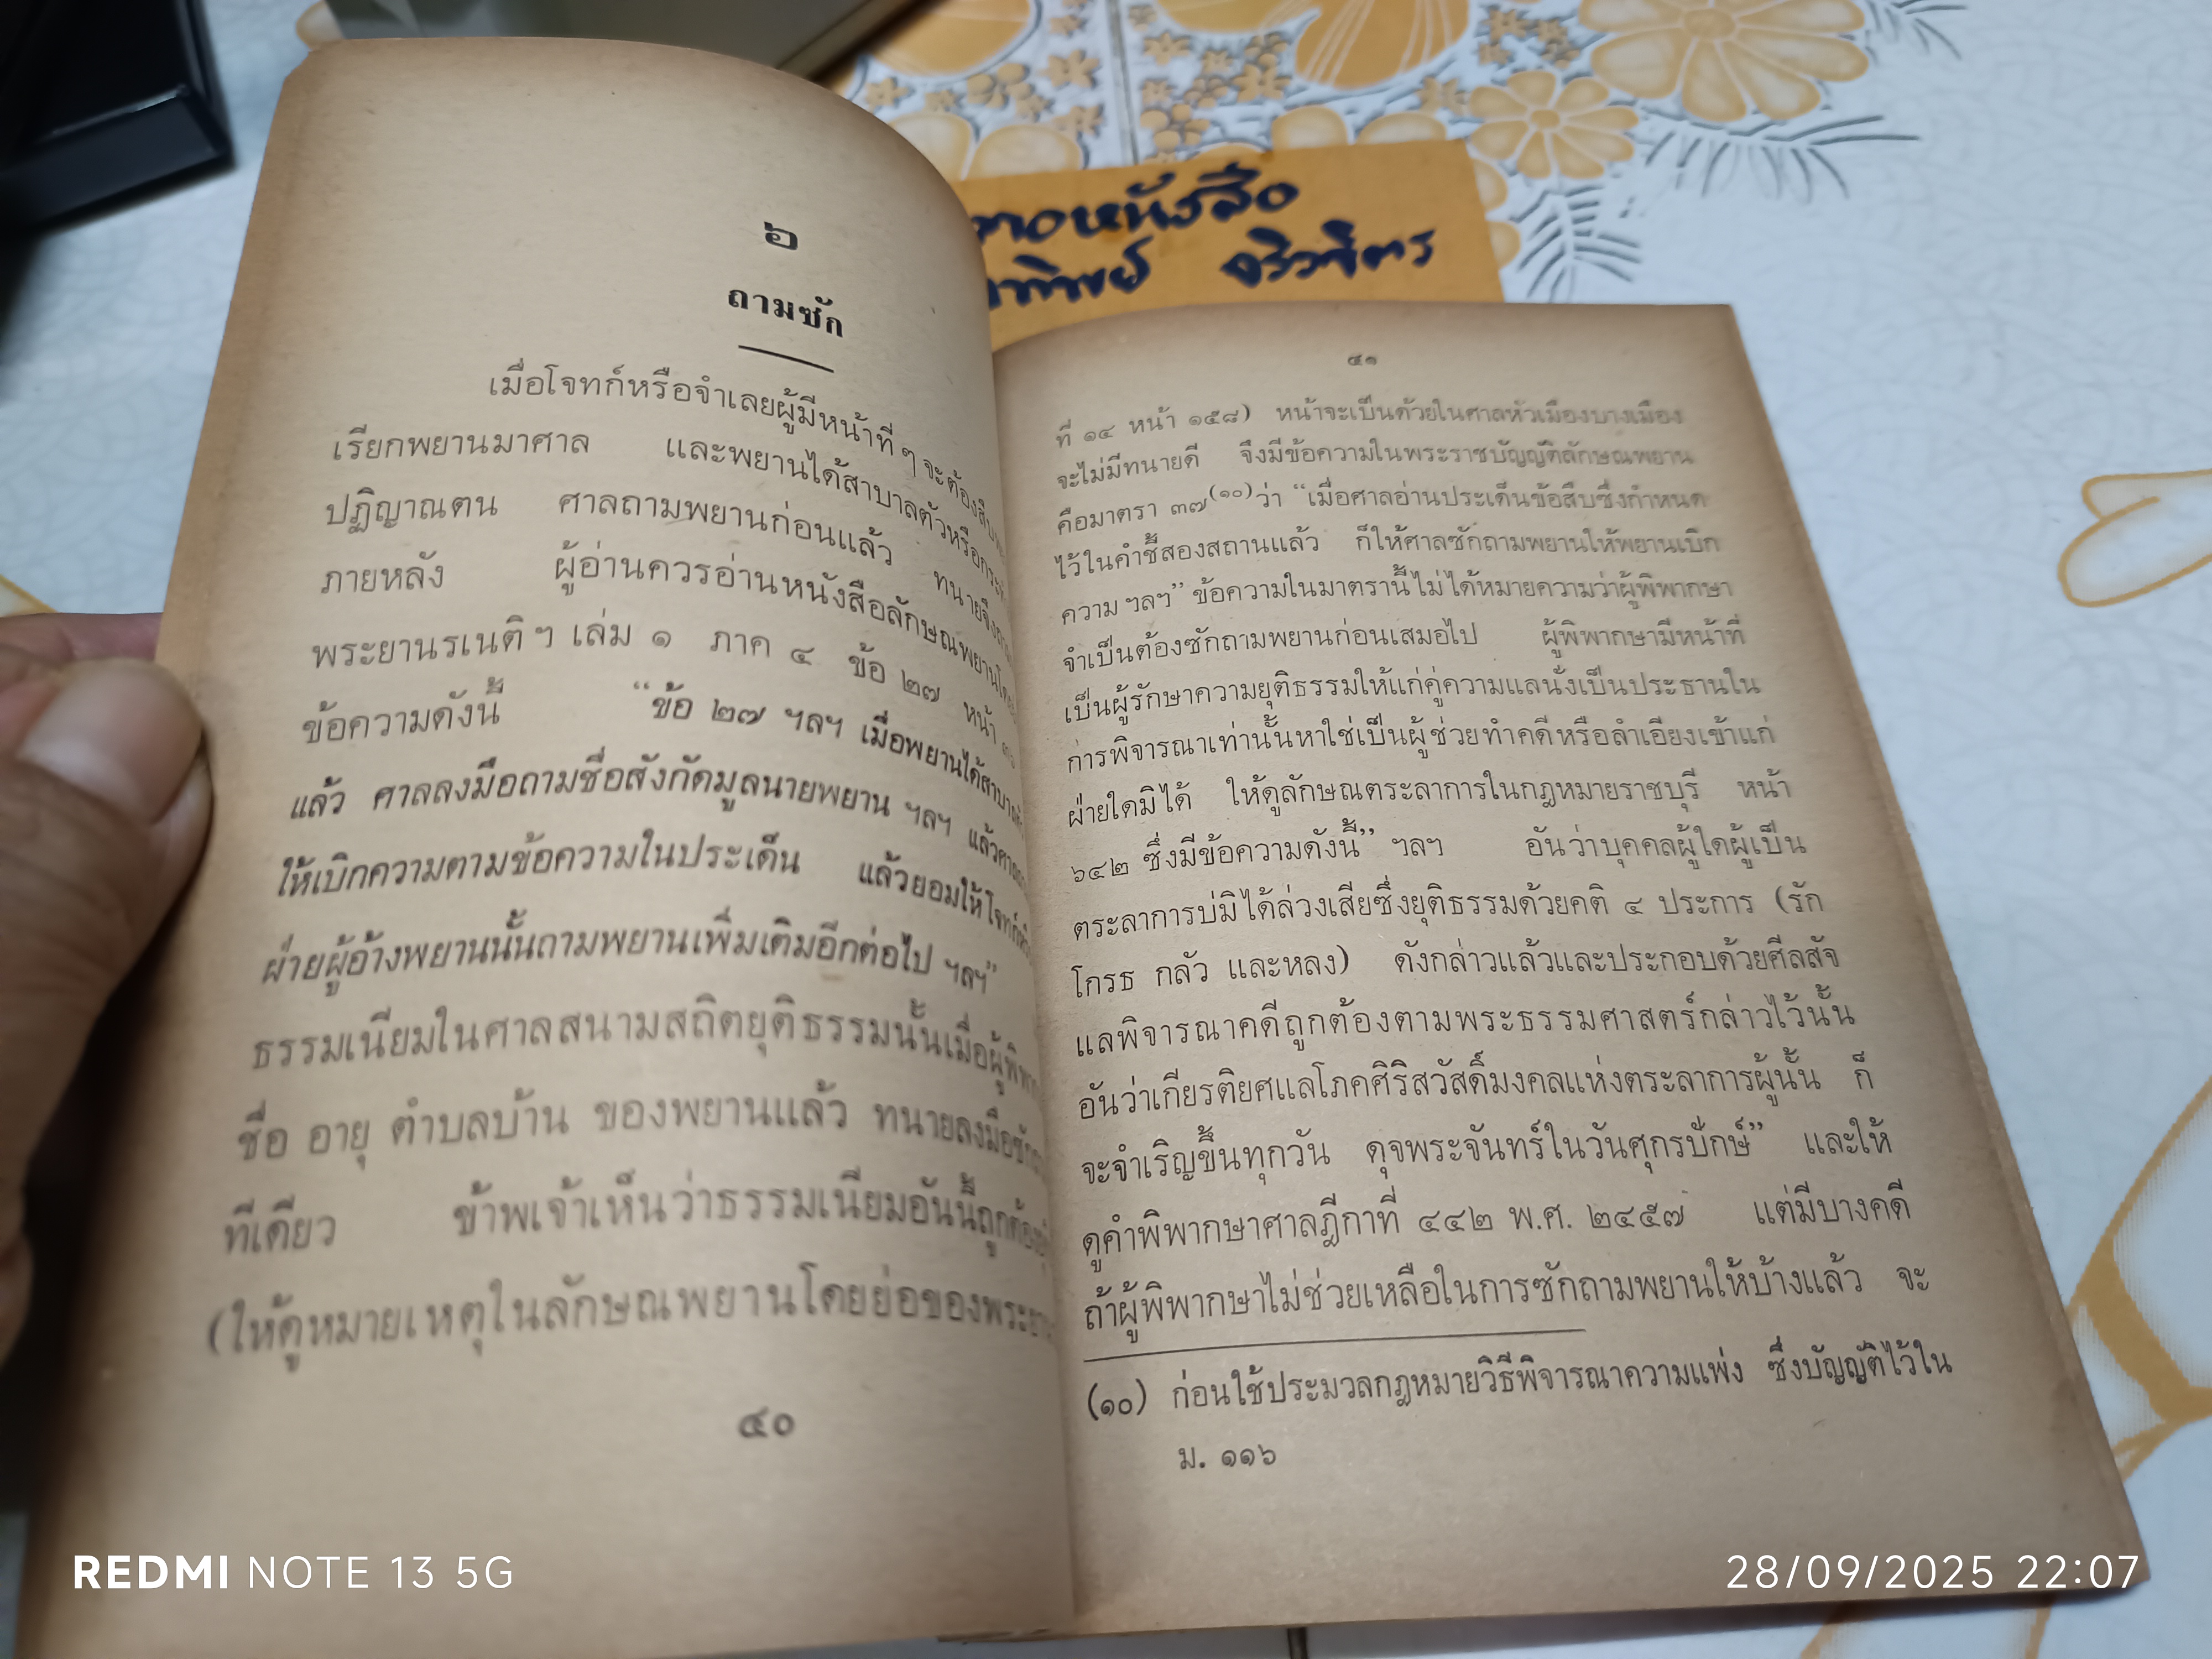 ๖
ถามซัก
เมื่อโจทก์หรือจำเลยผู้มีหน้าที่ ๆ จะต้อง
เรียกพยานมาศาล และพยานได้สาบาลตัวหรือ
ปฏิญาณตน ศาลถามพยานก่อนแล้ว ทนายจึง
ภายหลัง ผู้อ่านควรอ่านหนังสือลักษณพยาน
พระยานรเนติ ฯ เล่ม ๑ ภาค ๔ ข้อ ๒๗ หน้า
ข้อความดังนี้ “ข้อ ๒๗ ฯลฯ เมื่อพยานได้สาบาล
แล้ว ศาลลงมือถามชื่อสังกัดมูลนายพยาน ฯลฯ แล้ว
ให้เบิกความตามข้อความในประเด็น แล้วยอมให้โจทก์
ฝ่ายผู้อ้างพยานนั้นถามพยานเพิ่มเติมอีกต่อไป ฯลฯ”
ธรรมเนียมในศาลสนามสถิตยุติธรรมนั้นเมื่อ
ชื่อ อายุ ตำบลบ้าน ของพยานแล้ว ทนายลงมือ
ทีเดียว ข้าพเจ้าเห็นว่าธรรมเนียมอันนี้
(ให้ดูหมายเหตุในลักษณพยานโดยย่อของ
๔๐
๔๑
ที่ ๑๔ หน้า ๑๕๘) หน้าจะเป็นด้วยในศาลหัวเมืองบางเมือง
จะไม่มีทนายดี จึงมีข้อความในพระราชบัญญัติลักษณพยาน
คือมาตรา ๓๗(๑๐)ว่า “เมื่อศาลอ่านประเด็นข้อสืบซึ่งกำหนด
ไว้ในคำชี้สองสถานแล้ว ก็ให้ศาลซักถามพยานให้พยานเบิก
ความ ฯลฯ” ข้อความในมาตรานี้ไม่ได้หมายความว่าผู้พิพากษา
จำเป็นต้องซักถามพยานก่อนเสมอไป ผู้พิพากษามีหน้าที่
เป็นผู้รักษาความยุติธรรมให้แก่คู่ความแลนั่งเป็นประธานใน
การพิจารณาเท่านั้นหาใช่เป็นผู้ช่วยทำคดีหรือลำเอียงเข้าแก่
ฝ่ายใดมิได้ ให้ดูลักษณตระลาการในกฎหมายราชบุรี หน้า
๖๔๒ ซึ่งมีข้อความดังนี้” ฯลฯ อันว่าบุคคลผู้ใดผู้เป็น
ตระลาการบ่มิได้ล่วงเสียซึ่งยุติธรรมด้วยคติ ๔ ประการ (รัก
โกรธ กลัว และหลง) ดังกล่าวแล้วและประกอบด้วยศีลสัจ
แลพิจารณาคดีถูกต้องตามพระธรรมศาสตร์กล่าวไว้นั้น
อันว่าเกียรติยศแลโภคศิริสวัสดิ์มงคลแห่งตระลาการผู้นั้น ก็
จะจำเริญขึ้นทุกวัน ดุจพระจันทร์ในวันศุกรปักษ์” และให้
ดูคำพิพากษาศาลฎีกาที่ ๔๔๒ พ.ศ. ๒๔๕๗ แต่มีบางคดี
ถ้าผู้พิพากษาไม่ช่วยเหลือในการซักถามพยานให้บ้างแล้ว จะ
(๑๐) ก่อนใช้ประมวลกฎหมายวิธีพิจารณาความแพ่ง ซึ่งบัญญัติไว้ใน
ม. ๑๑๖
REDMI NOTE 13 5G
28/09/2025 22:07